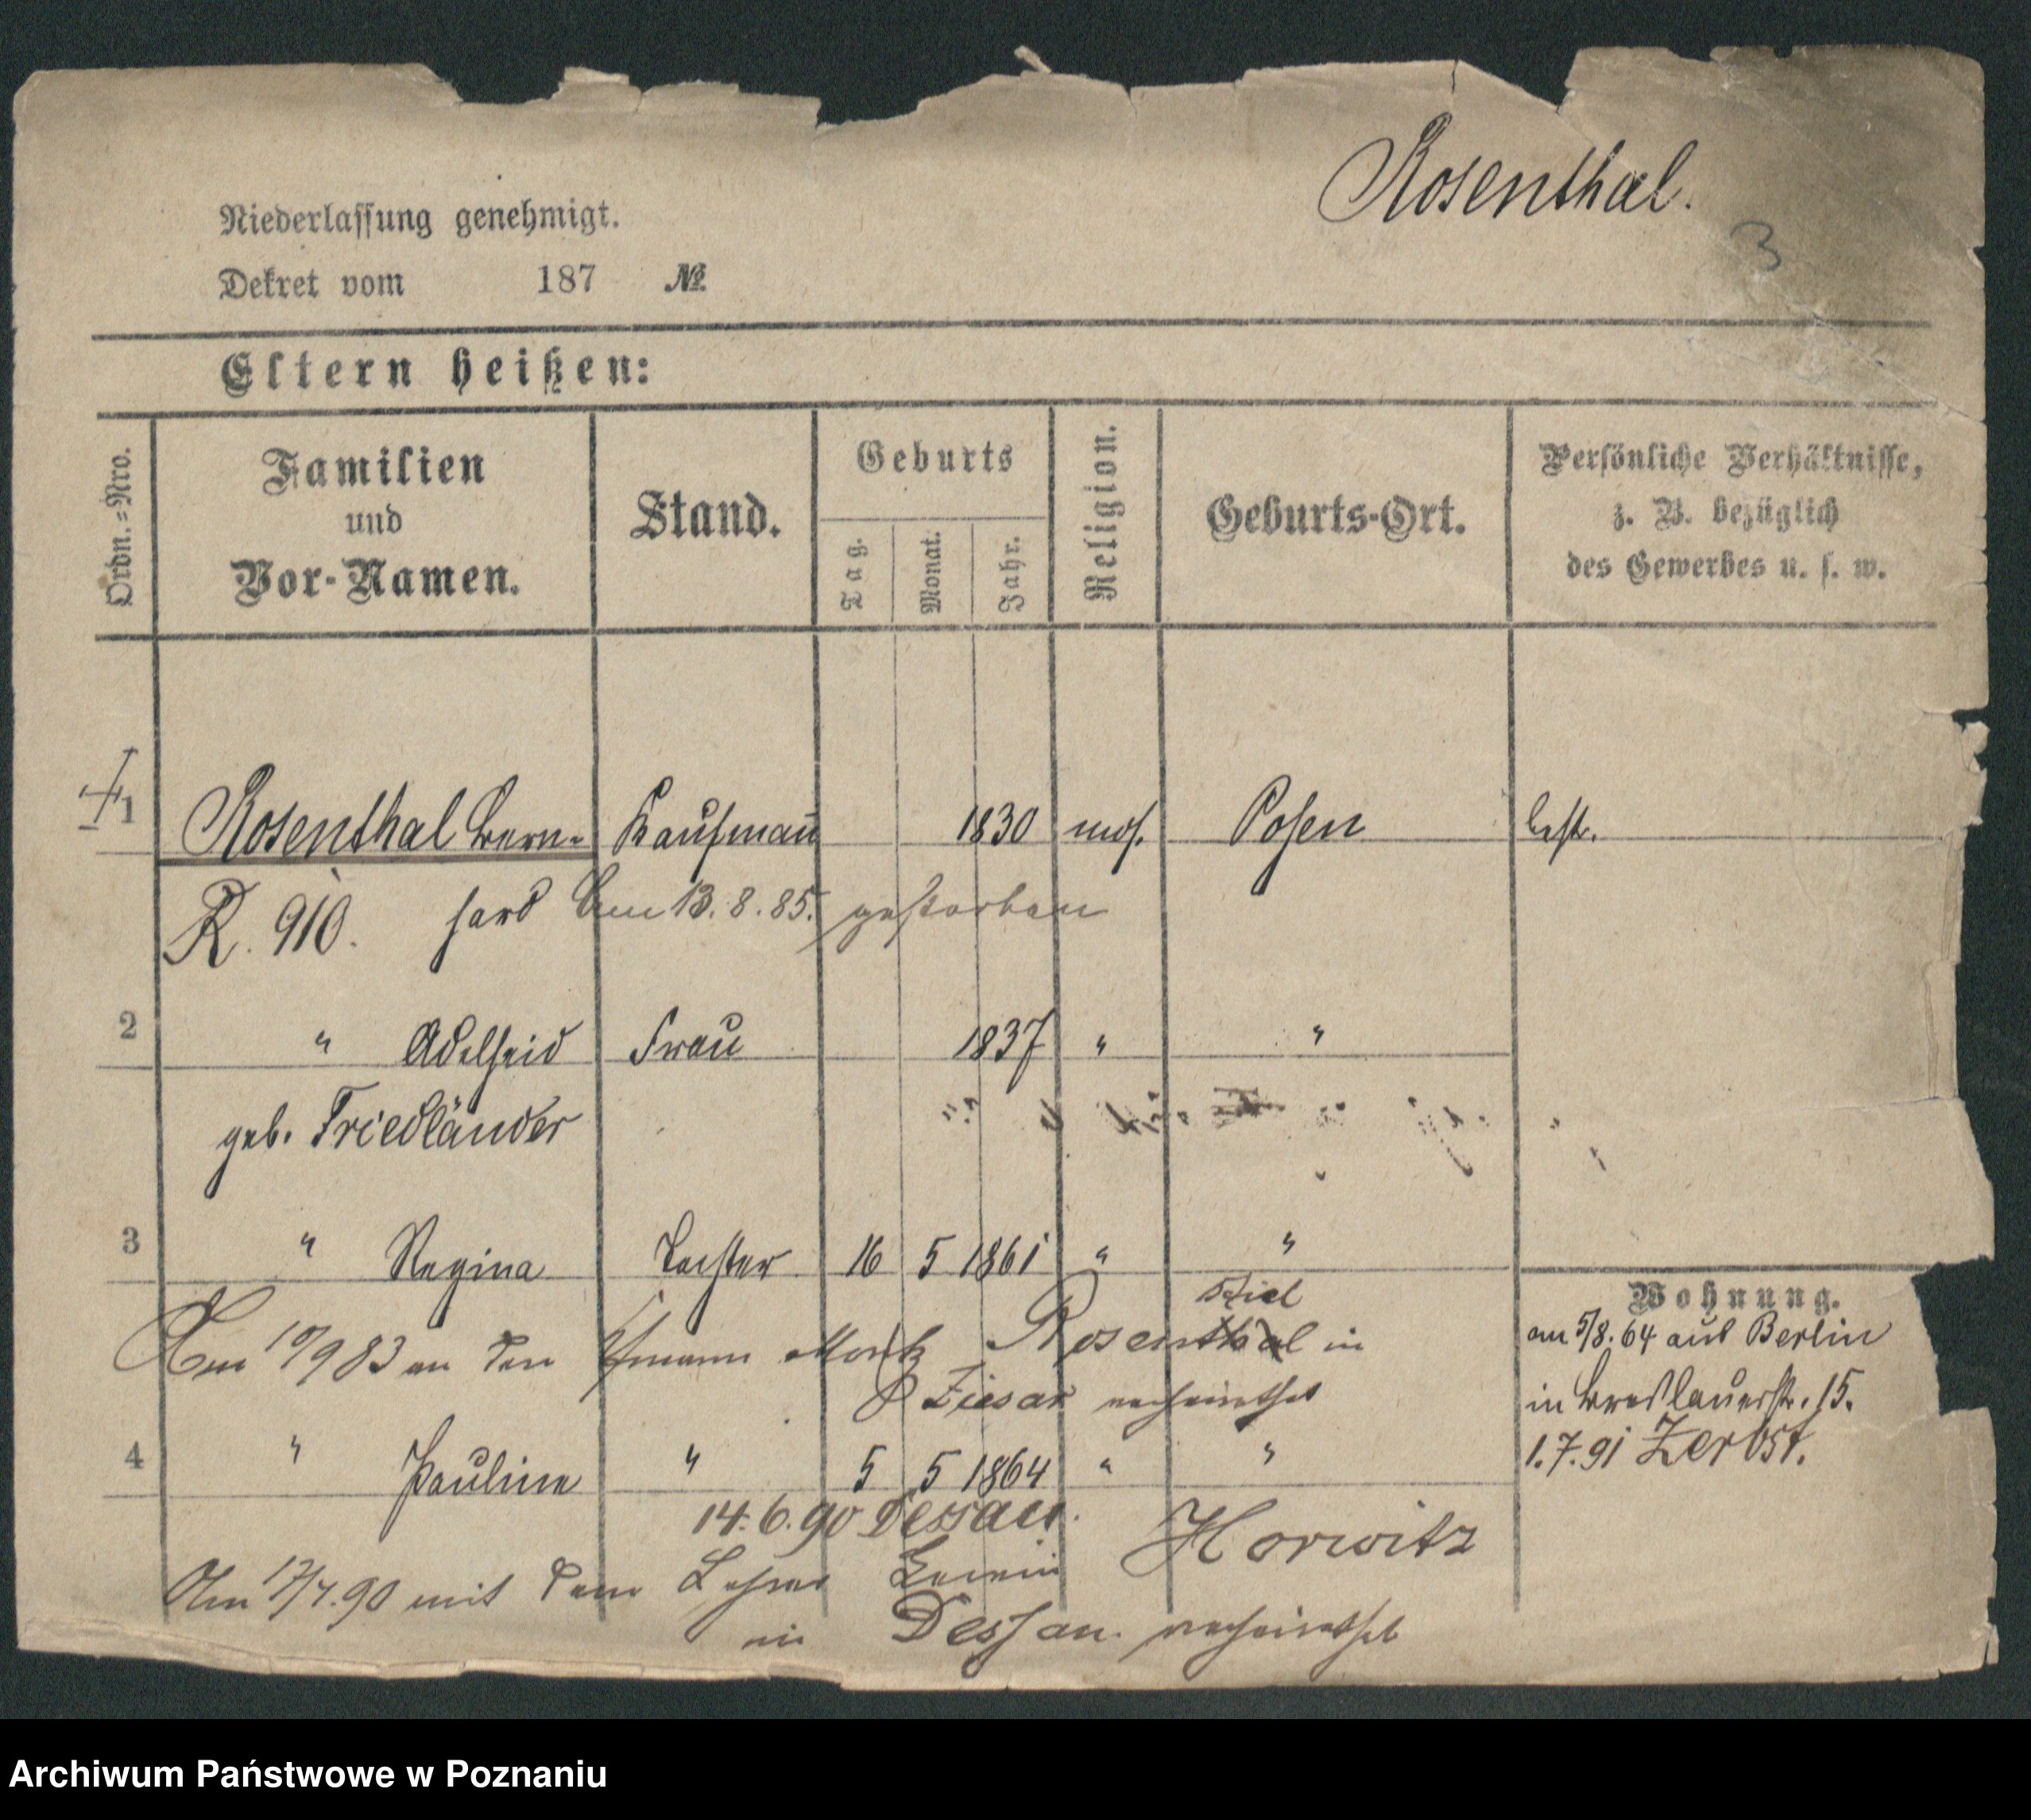 Rosenthal.
3
Niederlassung genehmigt.
Dekret vom 187 №
Eltern heißen:
Ordn.=Nro.
Familien
und
Vor-Namen.
Stand.
Geburts
Tag.
Monat.
Jahr.
Religion.
Geburts-Ort.
Persönliche Verhältnisse,
z. B. bezüglich
des Gewerbes u. s. w.
1 Rosenthal Bern- Kaufmann 1830 mos. Posen best.
R. 910. hard Am 13.8.85. gestorben
2 " Adelheid Frau 1837 " "
geb. Friedländer
3 " Regina Tochter 16 5 1861 " "
Wohnung.
Am 10/9 83 an den Kfmann Moritz Rosenthal in
Ziesar verheirathet
am 5/8.64 aus Berlin
in Breslauerstr. 15.
1.7.91 Zerbst.
4 " Pauline " 5 5 1864 " "
14.6.90 Dessau.
Am 17/7.90 mit dem Lehrer Horwitz
in Dessau. verheirathet
Archiwum Państwowe w Poznaniu